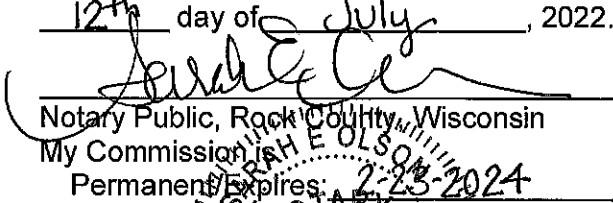 12th day of July, 2022.
Sarah E
Notary Public, Rock County, Wisconsin
My Commission is
Permanent/Expires: 2-23-2024
SARAH E OLSON
NOTARY